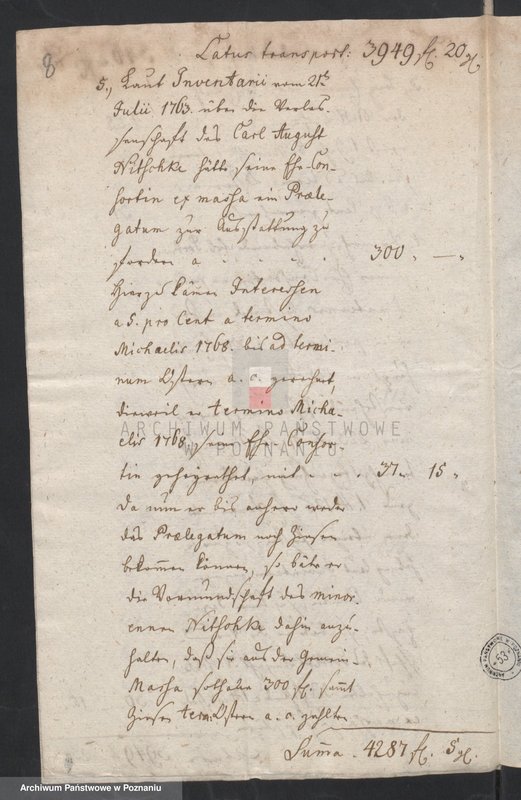 8
Latus transport: 3949 fl. 20 gl.
5., Laut Inventarii vom 21t
Julii 1763. über die Verlas-
senschaft des Carl August
Nitschke hätte seine Ehe-Con-
sortin ex massa ein Præle-
gatum zur Ausstattung zu
fordern a . . . . 300 " — "
Hierzu kämen Interessen
a 5. pro Cent a termino
Michaelis 1768. bis ad termi-
num Ostern a. c. gerechnet,
dieweil er termino Micha-
elis 1768 seine Ehe-Consor-
tin geheyrathet, mit . . 37 " 15 "
Da nun er bis anhero weder
das Prælegatum noch Zinsen
bekommen können, so bäte er
die Vormundschaft des minor-
ennen Nithschke dahin anzu-
halten, daß sie aus der Gemein-
Massa sothane 300 fl. samt
Zinsen term: Ostern a. c. zahlte
Summa. 4287 fl. 5 gl.
ARCHIWUM PAŃSTWOWE
W POZNANIU
ARCHIWUM PAŃSTWOWE W POZNANIU
53
Archiwum Państwowe w Poznaniu